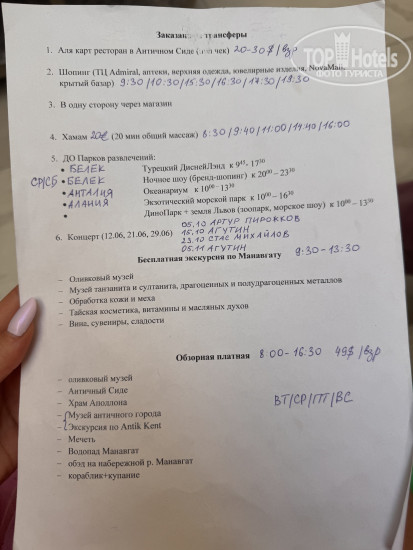 Заказаны трансферы
1. Аля карт ресторан в Античном Сиде чек) 20-30$/взр
2. Шопинг (ТЦ Admiral, аптеки, верхняя одежда, ювелирные изделия, NovaMall,
крытый базар) 9:30/10:30/15:30/16:30/17:30/18:30
3. В одну сторону через магазин
4. Хамам 20€ (20 мин общий массаж) 8:30/9:40/11:00/14:40/16:00
5. ДО Парков развлечений:
• БЕЛЕК Турецкий ДиснейЛэнд к 9⁴⁵- 17⁰⁰
СР/СБ • БЕЛЕК Ночное шоу (бренд-шопинг) к 20⁰⁰ – 23³⁰
• АНТАЛИЯ Океанариум к 10⁰⁰- 13³⁰
• АЛАНИЯ Экзотический морской парк к 10⁰⁰ – 16³⁰
• ДиноПарк + земля Львов (зоопарк, морское шоу) к 10⁰⁰ – 13³⁰
05.10 АРТУР ПИРОЖКОВ
15.10 АГУТИН
6. Концерт (12.06, 21.06, 29.06) 23.10 СТАС МИХАЙЛОВ
05.11 АГУТИН
Бесплатная экскурсия по Манавгату 9:30-13:30
– Оливковый музей
– Музей танзанита и султанита, драгоценных и полудрагоценных металлов
– Обработка кожи и меха
– Тайская косметика, витамины и масляных духов
– Вина, сувениры, сладости
Обзорная платная 8:00-16:30 49$/взр
– оливковый музей
– Античный Сиде
– Храм Аполлона ВТ/СР/ПТ/ВС
– Музей античного города
– Экскурсия по Antik Kent
– Мечеть
– Водопад Манавгат
– обэд на набережной р. Манавгат
– кораблик+купание
TopHotels
ФОТО ТУРИСТА